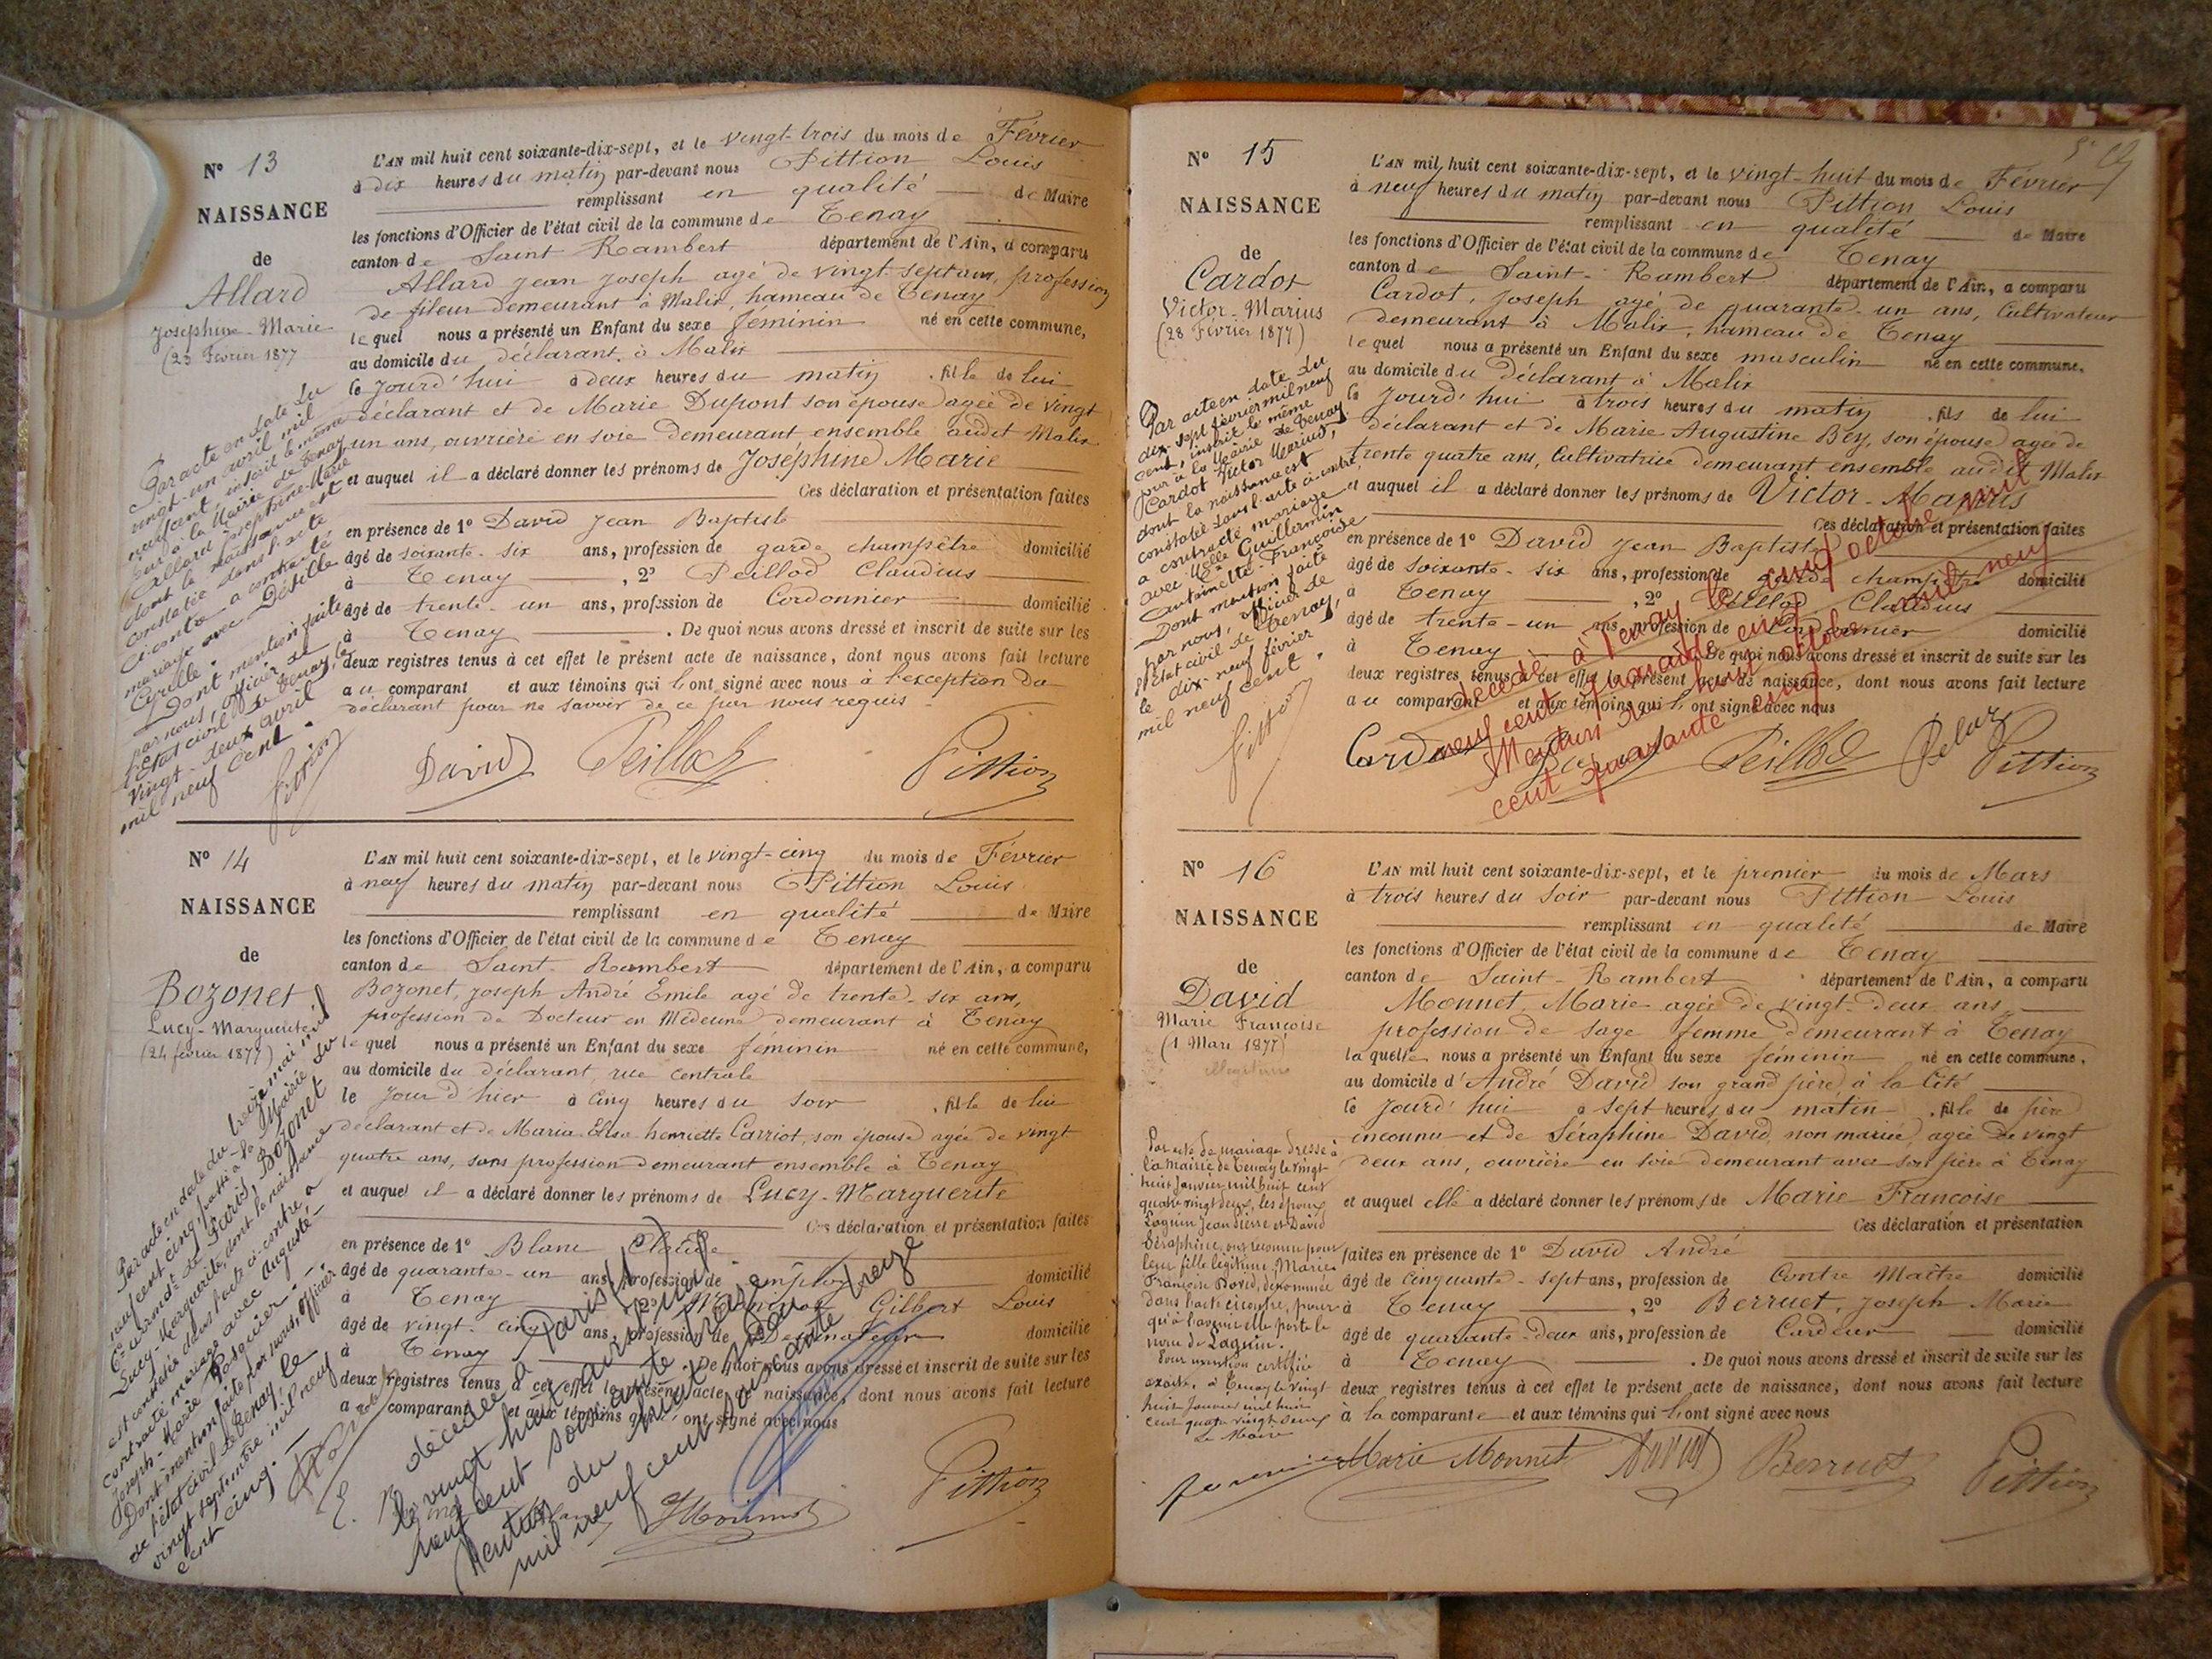 N° 13
NAISSANCE
de
Allard
Joséphine-Marie
(23 Février 1877
Par acte en date du
vingt-un avril mil
neuf cent, inscrit le même
jour à la Mairie de Tenay
Allard Joséphine-Marie
dont la naissance est
constatée dans l'acte
ci-contre a contracté
mariage avec Désille
Cyrille.
Dont mention faite
par nous, officier de
l'état civil de Tenay, le
vingt-deux avril
mil neuf cent.
Pittion
L'AN mil huit cent soixante-dix-sept, et le vingt-trois du mois de Février
à dix heures du matin par-devant nous Pittion Louis
remplissant en qualité de Maire
les fonctions d'Officier de l'état civil de la commune de Tenay
canton de Saint Rambert département de l'Ain, a comparu
Allard Jean Joseph agé de vingt-sept ans, profession
de fileur demeurant à Malix, hameau de Tenay
lequel nous a présenté un Enfant du sexe féminin né en cette commune,
au domicile du déclarant à Malix
le jourd'hui à deux heures du matin, fille de lui
déclarant et de Marie Dupont son épouse agée de vingt
un ans, ouvrière en soie demeurant ensemble audit Malix
et auquel il a déclaré donner les prénoms de Joséphine Marie
Ces déclaration et présentation faites
en présence de 1° David Jean Baptiste
âgé de soixante-six ans, profession de garde champêtre domicilié
à Tenay, 2° Peillod Claudius
âgé de trente-un ans, profession de Cordonnier domicilié
à Tenay. De quoi nous avons dressé et inscrit de suite sur les
deux registres tenus à cet effet le présent acte de naissance, dont nous avons fait lecture
au comparant et aux témoins qui l'ont signé avec nous à l'exception du
déclarant pour ne savoir de ce par nous requis
David Peillod Pittion
N° 14
NAISSANCE
de
Bozonet
Lucy-Marguerite
(24 février 1877)
Par acte en date du treize mai mil
neuf cent cinq, passé à la Mairie du
arrondt de Paris, Bozonet
Lucy-Marguerite, dont la naissance
est constatée dans l'acte ci-contre a
contracté mariage avec Auguste-
Joseph-Marie Pasquier.
Dont mention faite par nous, officier
de l'état civil de Tenay, le
vingt septembre mil neuf
cent cinq.
L'AN mil huit cent soixante-dix-sept, et le vingt-cinq du mois de Février
à neuf heures du matin par-devant nous Pittion Louis
remplissant en qualité de Maire
les fonctions d'Officier de l'état civil de la commune de Tenay
canton de Saint-Rambert département de l'Ain, a comparu
Bozonet, Joseph André Emile agé de trente-six ans,
profession de Docteur en Médecine demeurant à Tenay
lequel nous a présenté un Enfant du sexe féminin né en cette commune,
au domicile du déclarant, rue centrale
le jour d'hier à cinq heures du soir, fille de lui
déclarant et de Maria Elisa henriette Carriot, son épouse agée de vingt
quatre ans, sans profession demeurant ensemble à Tenay
et auquel il a déclaré donner les prénoms de Lucy-Marguerite
Ces déclaration et présentation faites
en présence de 1° Blanc Claude
âgé de quarante-un ans, profession de employé domicilié
à Tenay, 2° Gilbert Louis
âgé de vingt-cinq ans, profession de Dessinateur domicilié
à Tenay. De quoi nous avons dressé et inscrit de suite sur les
deux registres tenus à cet effet le présent acte de naissance, dont nous avons fait lecture
au comparant et aux témoins qui l'ont signé avec nous
décédée à Paris
le vingt huit avril mil
neuf cent soixante treize
Mention du huit mai
mil neuf cent soixante treize
Pittion
N° 15
NAISSANCE
de
Cardot
Victor-Marius
(28 Février 1877)
Par acte en date du
dix-sept février mil neuf
cent, inscrit le même
jour à la Mairie de Tenay,
Cardot Victor Marius,
dont la naissance est
constatée dans l'acte ci-contre,
a contracté mariage
avec Melle Guillermin
Antoinette-Françoise
Dont mention faite
par nous, officier de
l'état civil de Tenay,
le dix-neuf février
mil neuf cent.
Pittion
L'AN mil huit cent soixante-dix-sept, et le vingt-huit du mois de Février
à neuf heures du matin par-devant nous Pittion Louis
remplissant en qualité de Maire
les fonctions d'Officier de l'état civil de la commune de Tenay
canton de Saint-Rambert département de l'Ain, a comparu
Cardot, Joseph agé de quarante-un ans, Cultivateur
demeurant à Malix, hameau de Tenay
lequel nous a présenté un Enfant du sexe masculin né en cette commune,
au domicile du déclarant à Malix
le jourd'hui à trois heures du matin, fils de lui
déclarant et de Marie Augustine Bey, son épouse agée de
trente quatre ans, Cultivatrice demeurant ensemble audit Malix
et auquel il a déclaré donner les prénoms de Victor-Marius
Ces déclaration et présentation faites
en présence de 1° David Jean Baptiste
âgé de soixante-six ans, profession de garde champêtre domicilié
à Tenay, 2° Peillod Claudius
âgé de trente-un ans, profession de Cordonnier domicilié
à Tenay. De quoi nous avons dressé et inscrit de suite sur les
deux registres tenus à cet effet le présent acte de naissance, dont nous avons fait lecture
au comparant et aux témoins qui l'ont signé avec nous
décédé à Tenay le cinq octobre mil
neuf cent quarante cinq
Mention du huit octobre mil neuf
cent quarante cinq
Cardot Peillod Pittion
N° 16
NAISSANCE
de
David
Marie Françoise
(1 Mars 1877)
illégitime
Par acte de mariage dressé à
la mairie de Tenay le vingt-
huit Janvier mil huit cent
quatre vingt deux, les époux
Laguin Jean Pierre et David
Séraphine, ont reconnu pour
leur fille légitime, Marie
Françoise David, dénommée
dans l'acte ci contre, pour
qu'à l'avenir elle porte le
nom de Laguin.
Pour mention certifiée
exacte, à Tenay le vingt-
huit Janvier mil huit
cent quatre vingt deux
Le Maire
L'AN mil huit cent soixante-dix-sept, et le premier du mois de Mars
à trois heures du soir par-devant nous Pittion Louis
remplissant en qualité de Maire
les fonctions d'Officier de l'état civil de la commune de Tenay
canton de Saint-Rambert département de l'Ain, a comparu
Monnet, Marie agée de vingt-deux ans
profession de sage femme demeurant à Tenay
laquelle nous a présenté un Enfant du sexe féminin né en cette commune,
au domicile d'André David son grand père à la Cité
le jourd'hui à sept heures du matin, fille de père
inconnu et de Séraphine David, non mariée, agée de vingt
deux ans, ouvrière en soie demeurant avec son père à Tenay
et auquel elle a déclaré donner les prénoms de Marie Françoise
Ces déclaration et présentation
faites en présence de 1° David André
âgé de cinquante-sept ans, profession de Contre Maître domicilié
à Tenay, 2° Berruet, Joseph Marie
âgé de quarante-deux ans, profession de Cardeur domicilié
à Tenay. De quoi nous avons dressé et inscrit de suite sur les
deux registres tenus à cet effet le présent acte de naissance, dont nous avons fait lecture
à la comparante et aux témoins qui l'ont signé avec nous
Marie Monnet David Berruet Pittion